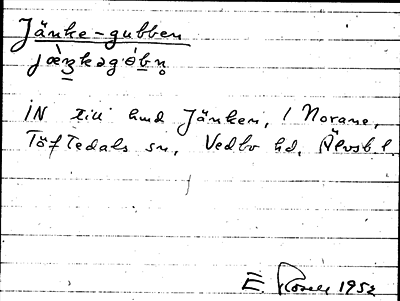 Jänke-gubben
jæ̀ŋkəgòb̲n̥
IN till hmd Jänken, i Norane,
Töftedals sn, Vedbo hd, Älvsb. l.
E. 1952